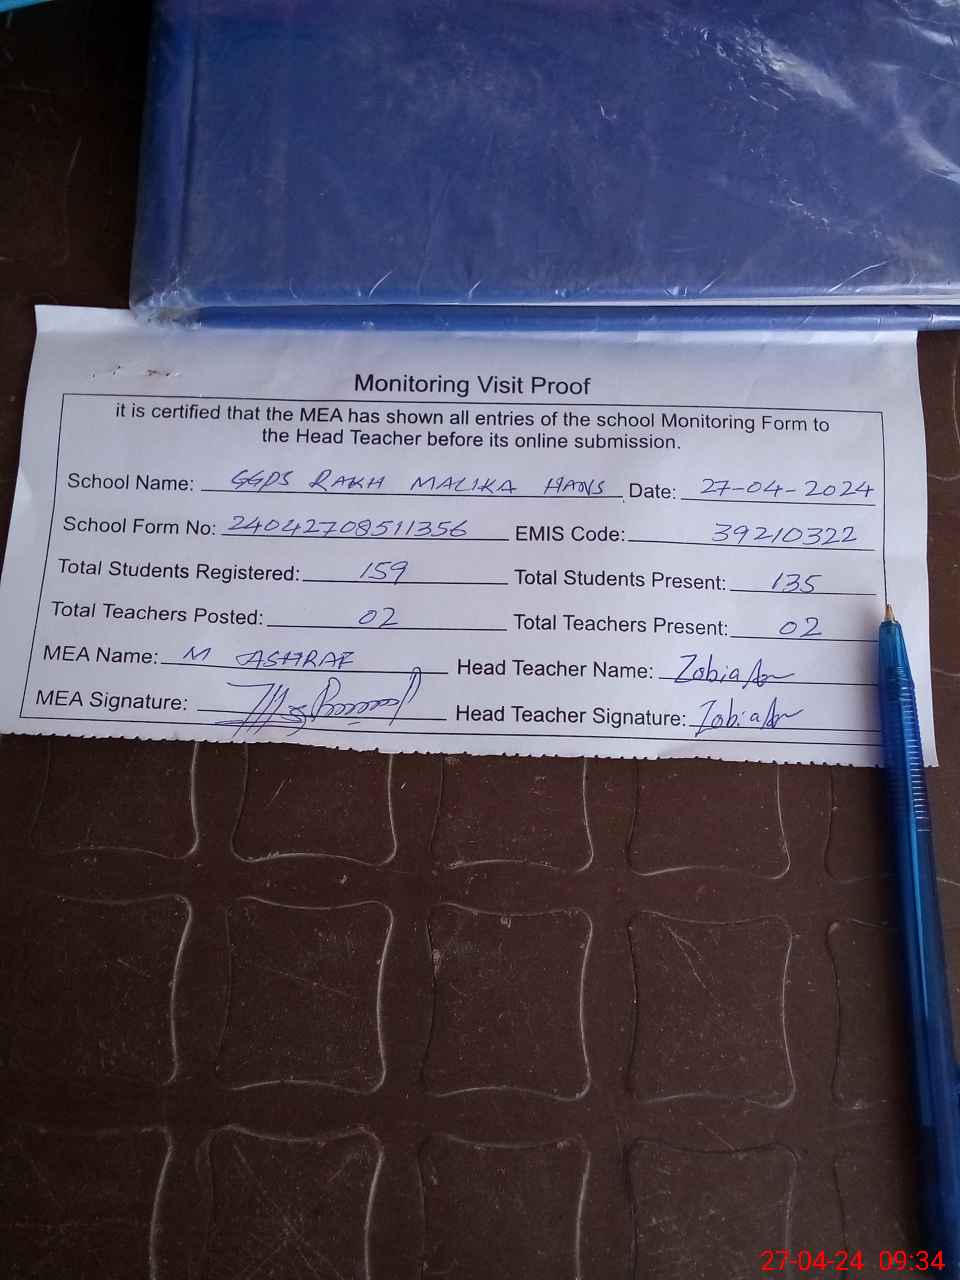 Monitoring Visit Proof
it is certified that the MEA has shown all entries of the school Monitoring Form to
the Head Teacher before its online submission.
School Name: GGPS RAKH MALIKA HANS Date: 27-04-2024
School Form No: 24042708511356 EMIS Code: 39210322
Total Students Registered: 159 Total Students Present: 135
Total Teachers Posted: 02 Total Teachers Present: 02
MEA Name: M ASHRAF Head Teacher Name: Zobia
MEA Signature: Head Teacher Signature: Zobia
27-04-24 09:34